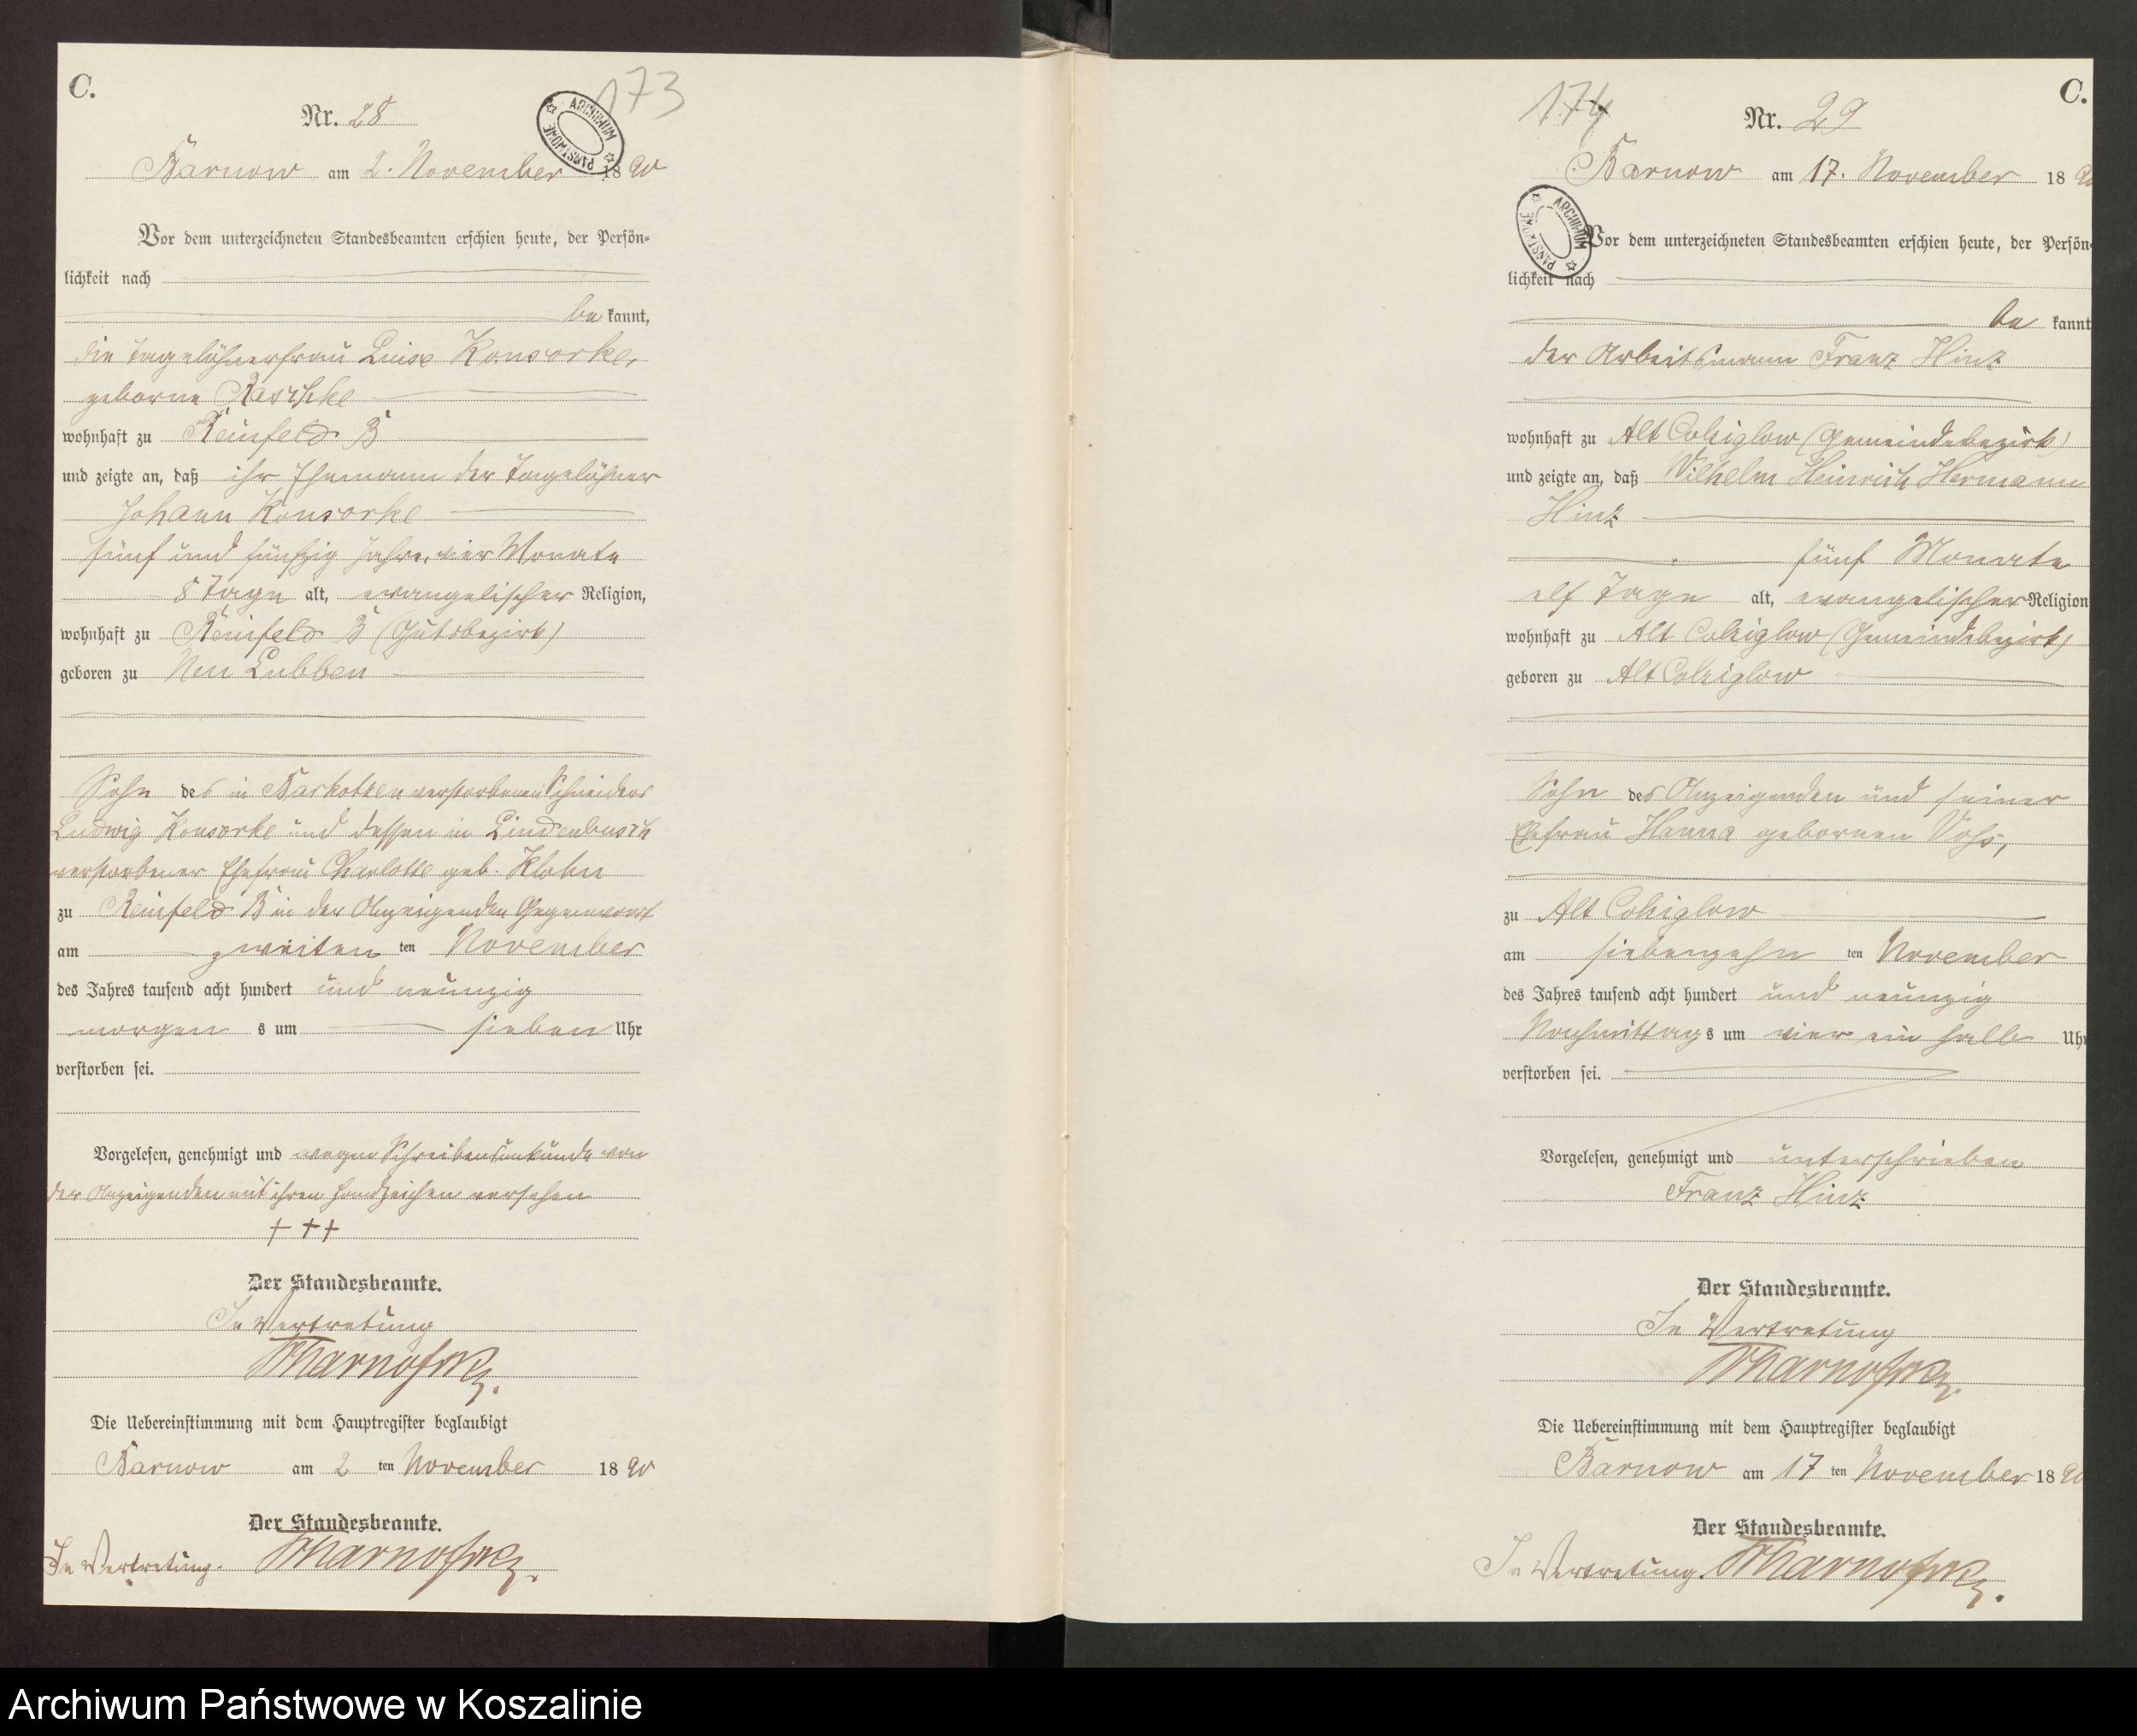 C.
173
Nr. 28
ARCHIWUM PAŃSTWOWE
Barnow am 2. November 1890
Vor dem unterzeichneten Standesbeamten erschien heute, der Persön-
lichkeit nach
bekannt,
die Tagelöhnerfrau Luise Konsorke,
geborne Raschke
wohnhaft zu Reinfeld B
und zeigte an, daß ihr Ehemann der Tagelöhner
Johann Konsorke
fünf und fünfzig Jahre, vier Monate
8 Tage alt, evangelischer Religion,
wohnhaft zu Reinfeld B (Gutsbezirk)
geboren zu Neu Lubben
Sohn des in Barkotzen verstorbenen Schneiders
Ludwig Konsorke und dessen in Lindenbusch
verstorbener Ehefrau Charlotte geb.
zu Reinfeld B in der Anzeigenden Gegenwart
am zweiten ten November
des Jahres tausend acht hundert und neunzig
morgens um sieben Uhr
verstorben sei.
Vorgelesen, genehmigt und wegen Schreibensunkunde von
der Anzeigenden mit ihren Handzeichen versehen
+ + +
Der Standesbeamte.
In Vertretung
Die Uebereinstimmung mit dem Hauptregister beglaubigt
Barnow am 2 ten November 1890
Der Standesbeamte.
In Vertretung.
C.
174
Nr. 29
Barnow am 17. November 1890
ARCHIWUM PAŃSTWOWE
Vor dem unterzeichneten Standesbeamten erschien heute, der Persön-
lichkeit nach
bekannt
der Arbeitsmann Franz Hinz
wohnhaft zu Alt Colziglow (Gemeindebezirk)
und zeigte an, daß Wilhelm Heinrich Hermann
Hinz
fünf Monate
elf Tage alt, evangelischer Religion
wohnhaft zu Alt Colziglow (Gemeindebezirk)
geboren zu Alt Colziglow
Sohn des Anzeigenden und seiner
Ehefrau Hanna gebornen Voss,
zu Alt Colziglow
am siebenzehn ten November
des Jahres tausend acht hundert und neunzig
Nachmittags um vier ein halb Uhr
verstorben sei.
Vorgelesen, genehmigt und unterschrieben
Franz Hinz
Der Standesbeamte.
In Vertretung
Die Uebereinstimmung mit dem Hauptregister beglaubigt
Barnow am 17 ten November 1890
Der Standesbeamte.
In Vertretung.
Archiwum Państwowe w Koszalinie